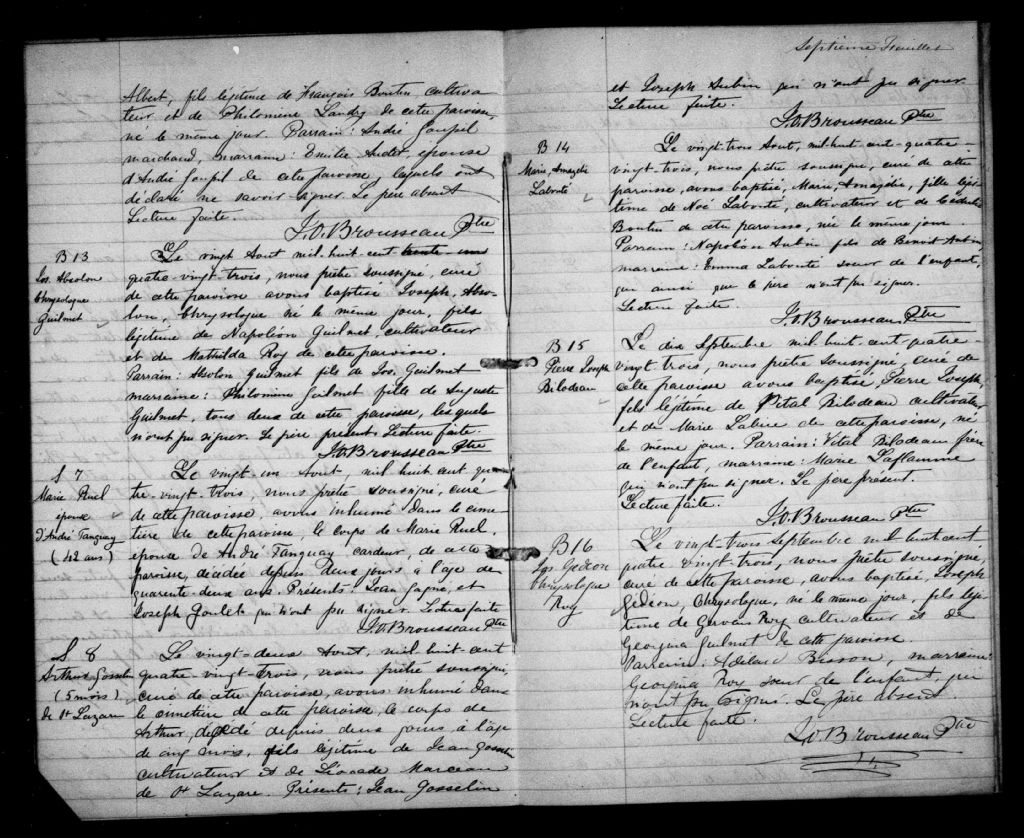 Albert, fils légitime de François Boutin cultiva-
teur et de Philomene Landry de cette paroisse,
né le même jour. Parrain: André Goupil
marchand, marraine: Emilie Audet, épouse
d'André Goupil de cette paroisse, lesquels ont
déclaré ne savoir signer. Le père absent
Lecture faite.
J.O. Brousseau Ptre
B 13
Jos. Absolon
Chrysologue
Guilmet
Le vingt Aout mil huit cent trente un
quatre-vingt-trois, nous prêtre soussigné, curé
de cette paroisse avons baptisé Joseph, Abso-
lon, Chrysologue né le même jour, fils
légitime de Napoléon Guilmet, cultivateur
et de Mathilda Roy de cette paroisse.
Parrain: Absolon Guilmet fils de Jos. Guilmet
marraine: Philomène Guilmet fille de Auguste
Guilmet, tous deux de cette paroisse, lesquels
n'ont pu signer. Le père present. Lecture faite.
J.O. Brousseau Ptre
S 7
Marie Ruel
épouse
d'André Tanguay
(42 ans)
Le vingt-un Aout, mil huit cent qua-
tre-vingt-trois, nous prêtre soussigné, curé
de cette paroisse, avons inhumé dans le cime-
tière de cette paroisse, le corps de Marie Ruel.
épouse de André Tanguay cardeur, de cette
paroisse, décédée depuis deux jours à l'age de
quarente-deux ans. Présents: Jean Gagné, et
Joseph Goulet qui n'ont pu signer. Lecture faite
J.O. Brousseau Ptre
S 8
Arthur Gosselin
(5 mois)
de St Lazare
Le vingt-deux Aout, mil huit cent
quatre vingt trois, nous prêtre soussigné,
curé de cette paroisse, avons inhumé dans
le cimetière de cette paroisse, le corps de
Arthur, décédé depuis deux jours à l'âge
de cinq mois, fils légitime de Jean Gosselin
cultivateur et de Léocade Marceau
de St Lazare. Présents: Jean Gosselin
Septième Feuillet
et Joseph Aubin qui n'ont pu signer.
Lecture faite.
J.O. Brousseau Ptre
B 14
Marie, Amazélie
Labonté
Le vingt-trois Aout, mil huit cent-quatre-
vingt-trois, nous prêtre soussigné, curé de cette
paroisse, avons baptisé, Marie, Amazélie, fille légi-
time de Noé Labonté, cultivateur et de
Boutin de cette paroisse, née le même jour.
Parrain: Napoléon Aubin fils de Benoit Aubin,
marraine: Emma Labonté soeur de l'enfant,
qui ainsi que le père n'ont pu signer.
Lecture faite.
J.O. Brousseau Ptre
B 15
Pierre Joseph
Bilodeau
Le dix Septembre mil huit cent quatre-
vingt trois, nous prêtre soussigné, curé de
cette paroisse avons baptisé, Pierre Joseph,
fils légitime de Vital Bilodeau cultivateur
et de Marie de cette paroisse, né
le même jour. Parrain: Vital Bilodeau frère
de l'enfant, marraine: Marie Laflamme
qui n'ont pu signer. Le père présent.
Lecture faite.
J.O. Brousseau Ptre
B 16
Jos Gédéon
Chrysologue
Roy
Le vingt-trois septembre mil huit cent
quatre vingt-trois, nous prêtre soussigné,
curé de cette paroisse, avons baptisé, Joseph
Gédéon, Chrysologue, né le même jour, fils légi-
time de Gervais Roy cultivateur et de
Georgina Guilmet de cette paroisse.
Parrain: Adelard Bisson, marraine:
Georgina Roy soeur de l'enfant, qui
n'ont pu signer. Le père absent.
Lecture faite.
J.O. Brousseau Ptre